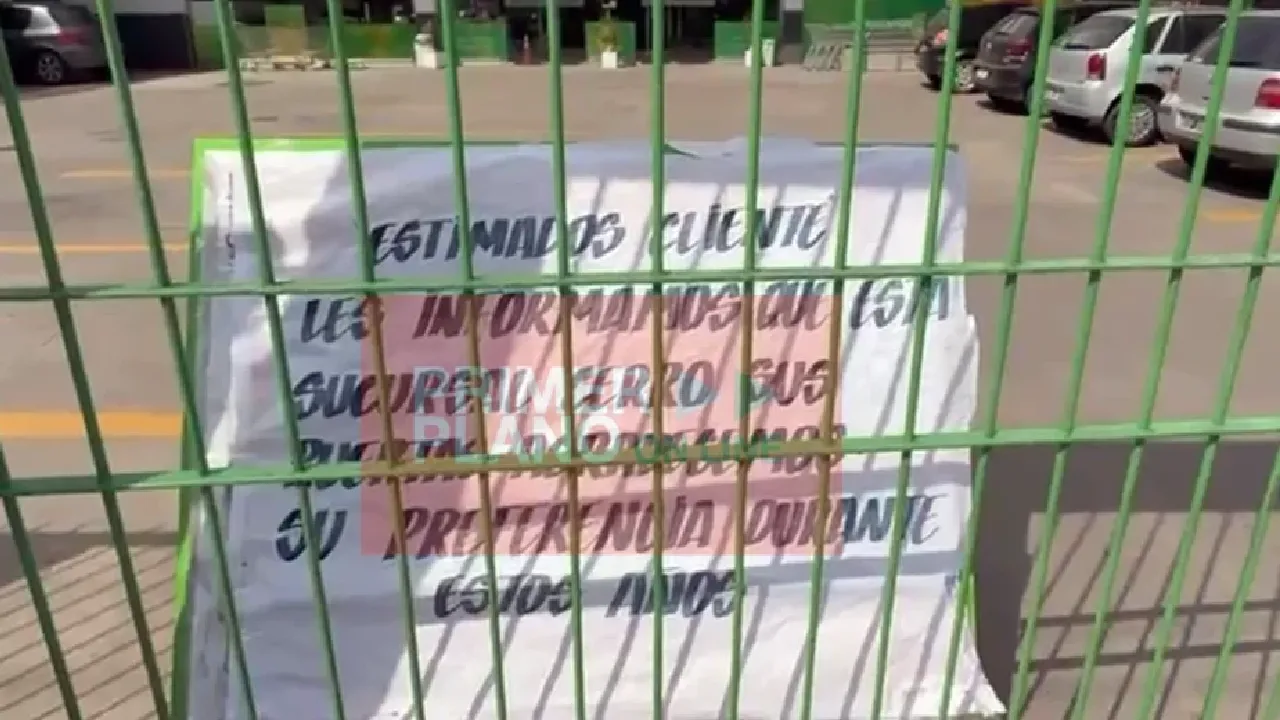 ESTIMADOS CLIENTE
LES INFORMAMOS QUE ESTA
SUCURSAL CERRO SUS
PUERTAS AGRADECEMOS
SU PREFERENCIA DURANTE
ESTOS AÑOS
PRIMER
PLANO ON LINE